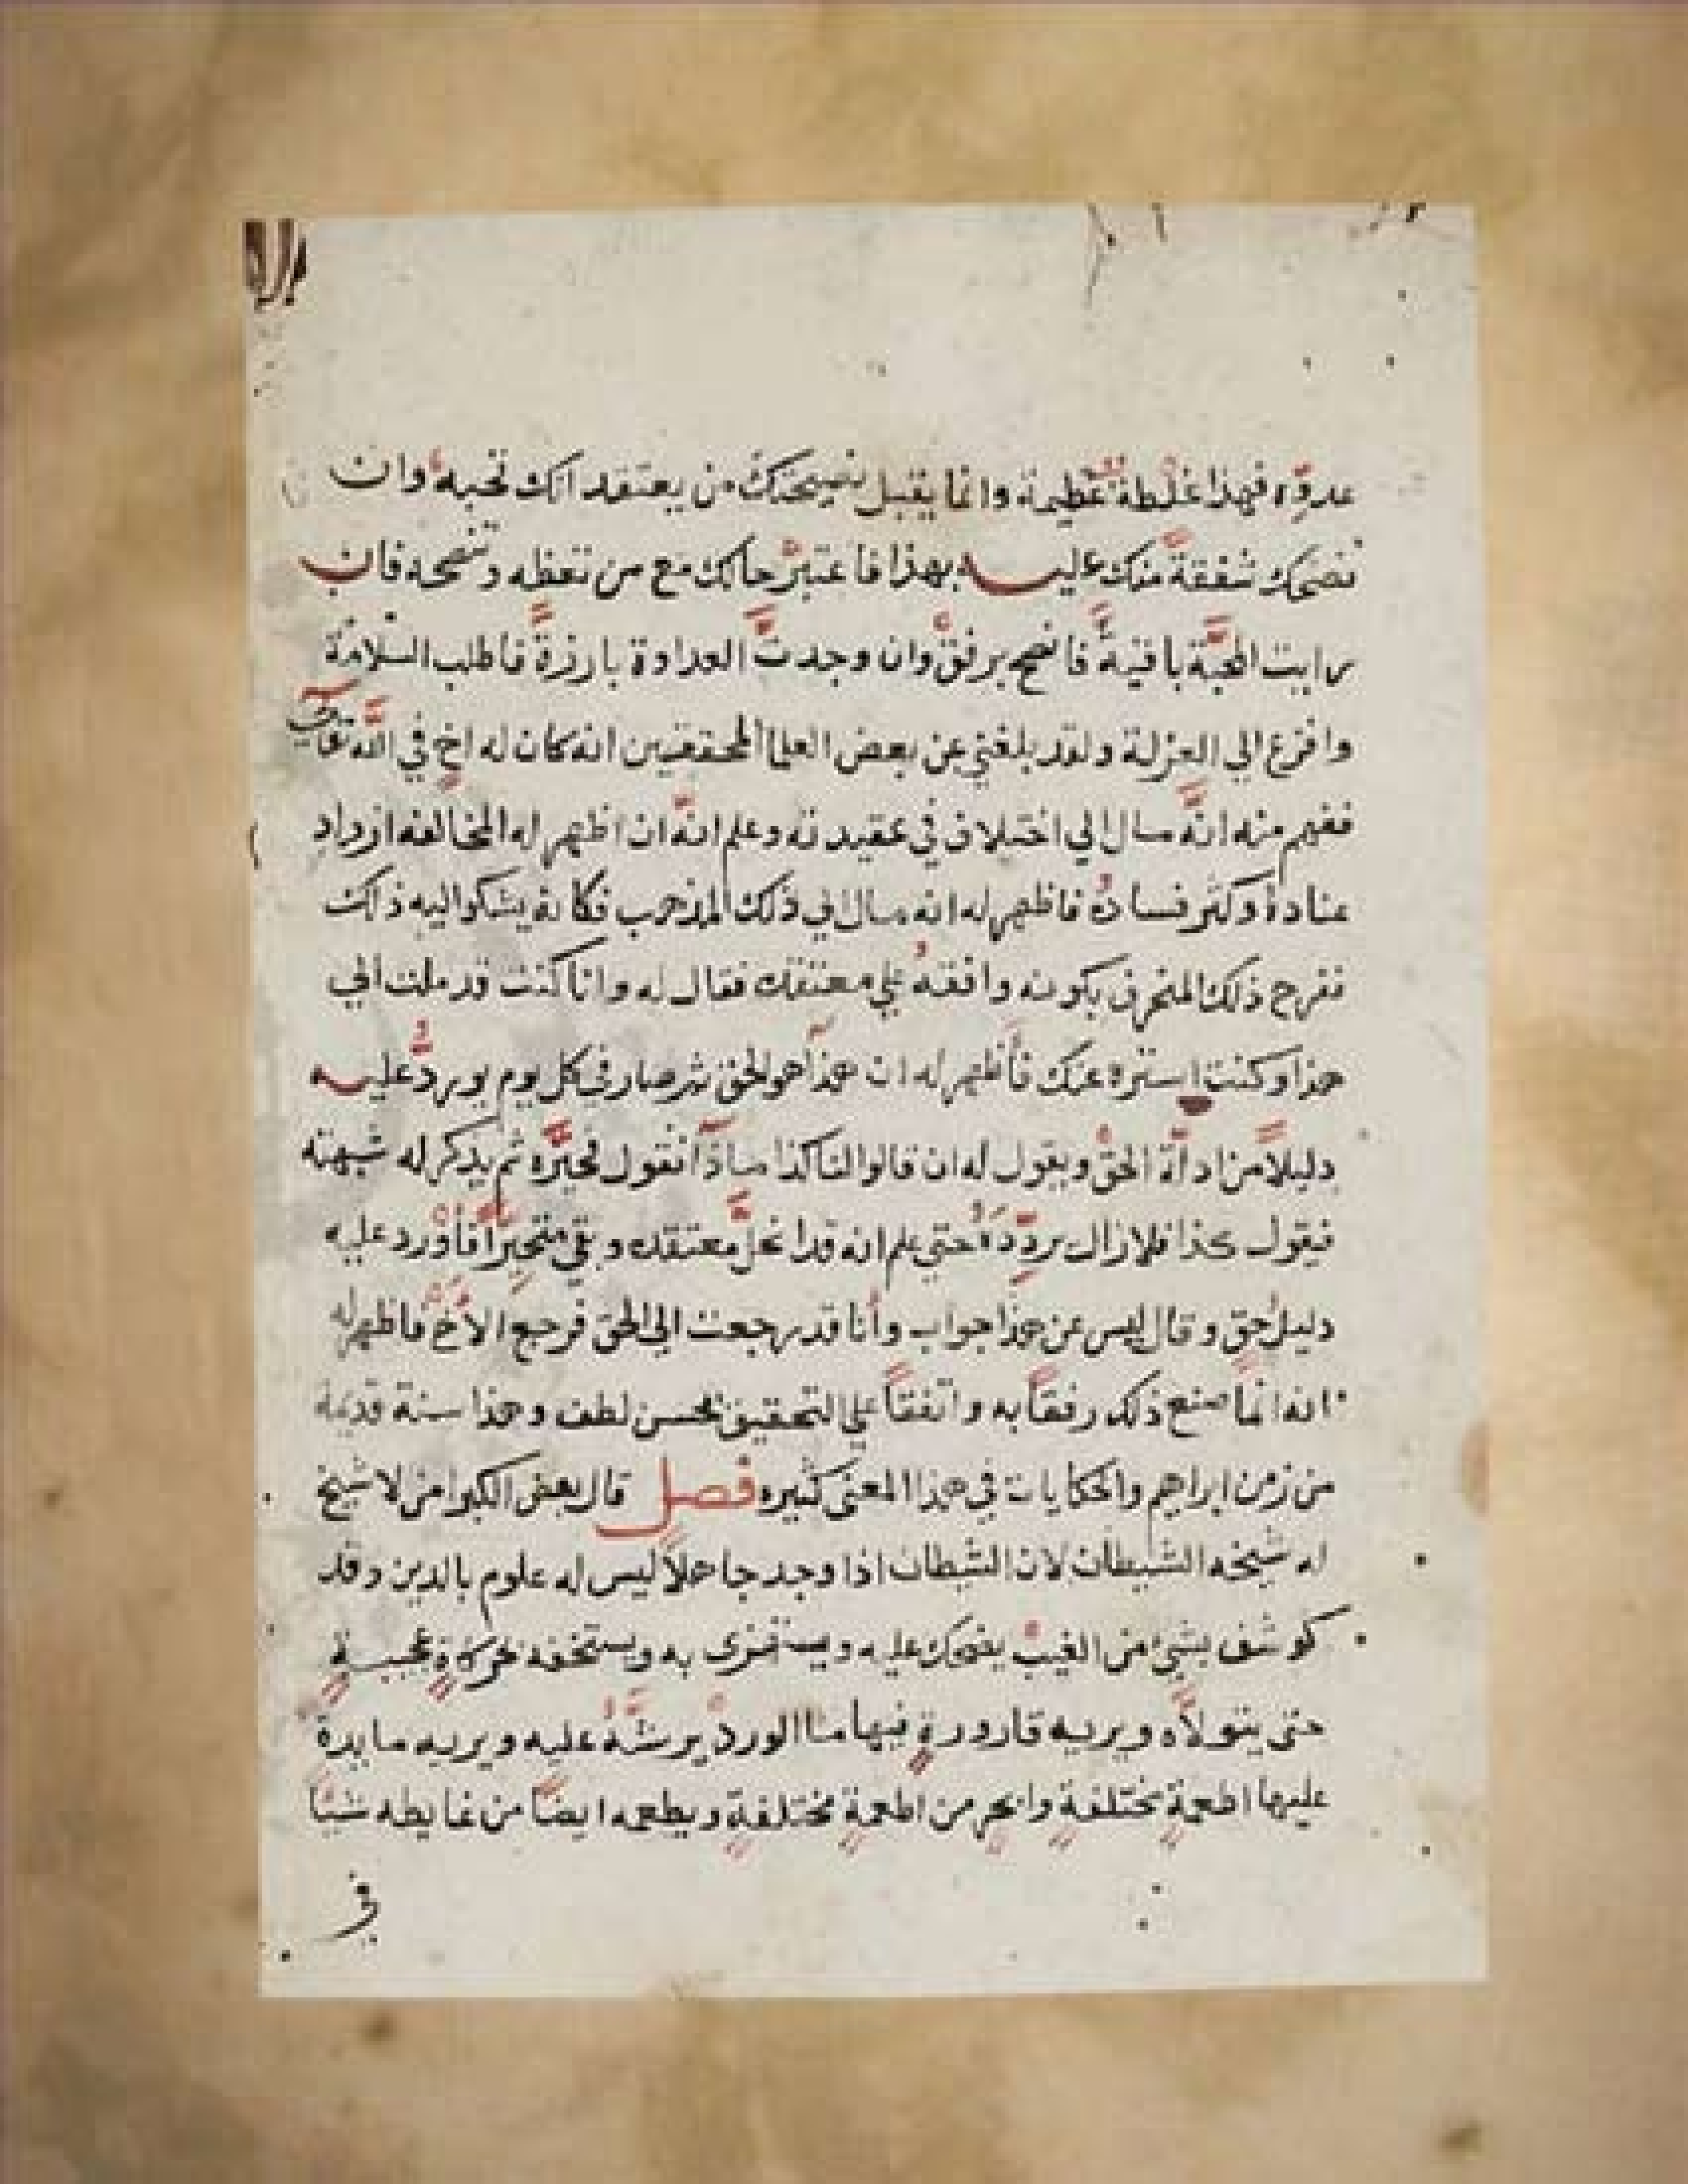 عدوّه فهذا غلطةٌ عظيمة وانما يقبل نصيحتك من يعتقد انك تحبه وان
نصحك شفقةً منك عليه بهذا فاعتبرْ حالك مع من تعظه وتنصحه فان
رايت المحبَّة باقيةً فانصح برفقٍ وان وجدتَّ العداوة بارزةً فاطلب السلامة
وافزع الي العزلة ولقد بلغني عن بعض العلما المحققين انه كان له اخٍ في الله تعالى
ففهم منه انَّه مال الي اختلاف في عقيدته وعلم انَّه ان اظهر له المخالفه ازداد
عناده وكثر فساده فاظهر له انه مال الي ذلك المذهب فكانه يشكوا اليه ذلك
ففرح ذلك المنحرف بكونه وافقهُ علي معتقده فقال له وانا كنت قد ملت الي
هذا وكنت استره عنك فأظهر له ان هذا هو الحق ثم صار في كل يوم يوردُّ عليه
دليلاً من ادلَّة الحقّ ويقول له ان قالوا لنا كذا ماذا نقول فحيَّره ثم يذكر له شبهته
فيقول كذا فلا زال يردّدهُ حتي علم انه قد انحلَّ معتقده وبقي متحيّراً فأورد عليه
دليل حق وقال ليس عن هذا جواب وأنا قد رجعت الي الحق فرجع الأخُ فاظهر له
انه انماً صنع ذلك رفقاً به واتفقاً علي التحقيق بحسن لطف وهذا سنة قديمة
من زمن ابراهيم والحكايات في هذا المعنى كثيره فصل قال بعض الكبرا من لا شيخ
له شيخه الشيطان لان الشيطان اذا وجد جاهلاً ليس له علوم بالدين وقد
كوشف بشيٍ من الغيب يضحك عليه ويستهزى به ويستخفه بحركاةٍ عجيبةٍ
حتى يتولاَّه ويريه قارورةٍ فيها ما الورد يرشَّهُ عليه ويريه مايدة
عليها اطعمةٍ مختلفةٍ وابحرٍ من اطعمةٍ مختلفةٍ ويطعمه ايضاً من غايطه شيئاً
في